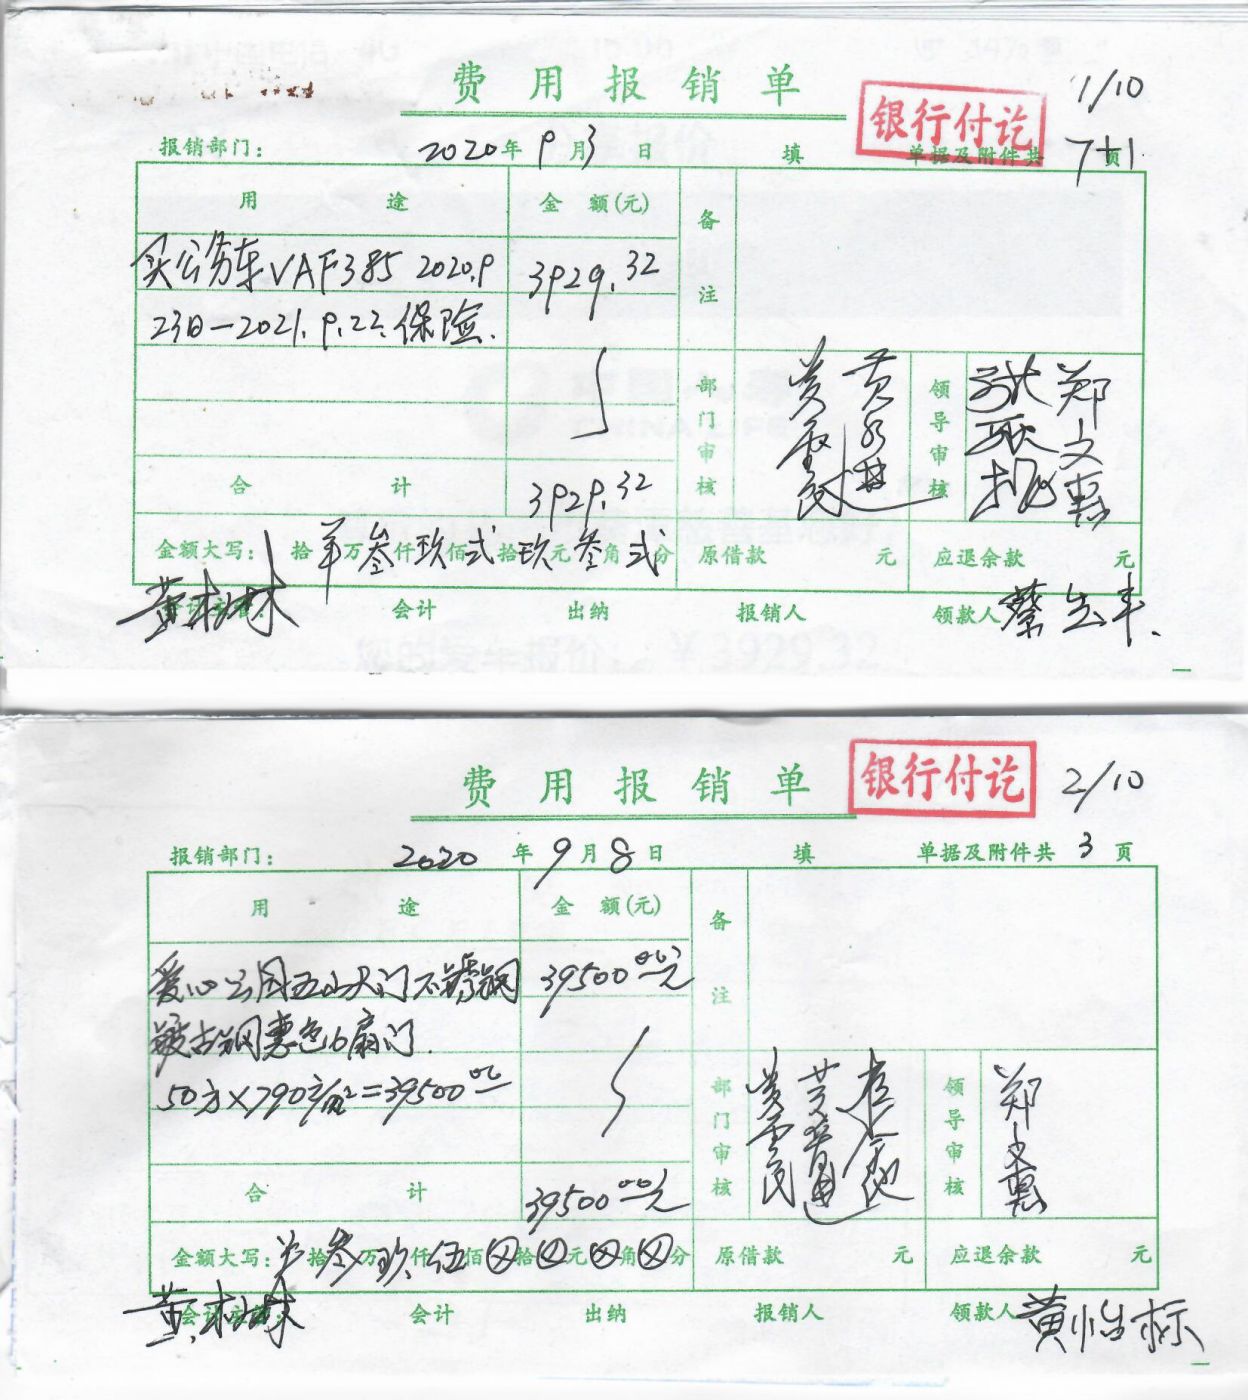 费用报销单
银行付讫
1/10
报销部门：
2020年9月3日
填
单据及附件共7+1页
用途
金额(元)
备注
买公务车VAF385 2020.9
3929.32
23日-2021.9.22.保险.
部门审核
黄
领导审核
郑文惠
合计
3929.32
金额大写：
拾羊万叁仟玖佰弍拾玖元叁角弍分
原借款
元
应退余款
元
会计
出纳
报销人
领款人
蔡
您的爱车报价：￥3929.32
费用报销单
银行付讫
2/10
报销部门：
2020年9月8日
填
单据及附件共3页
用途
金额(元)
备注
爱心公园五山大门不锈钢
39500.00元
镀古铜惠色6扇门.
50方×790元/m²=39500.00
部门审核
领导审核
郑文惠
合计
39500.00元
金额大写：
拾叁万玖仟伍佰⊗拾⊗元⊗角⊗分
原借款
元
应退余款
元
会计
出纳
报销人
领款人
黄怡标